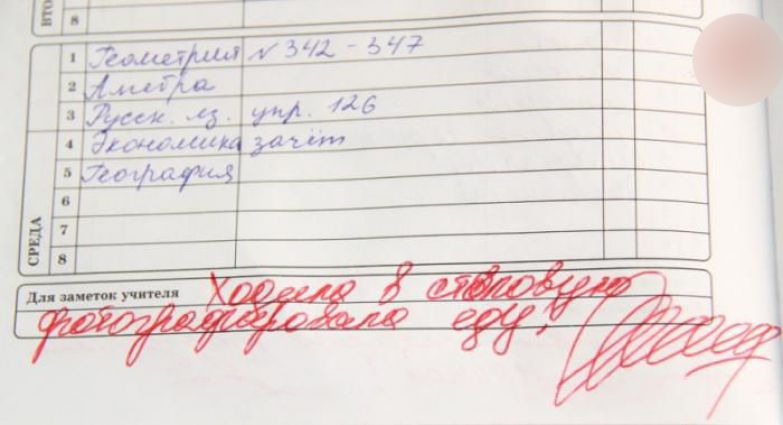 ВТО
8
СРЕДА
1 Геометрия N 342 - 347
2 Алгебра
3 Русск. яз. упр. 126
4 Экономика зачёт
5 География
6
7
8
Для заметок учителя Ходила в столовую
фотографировала еду!